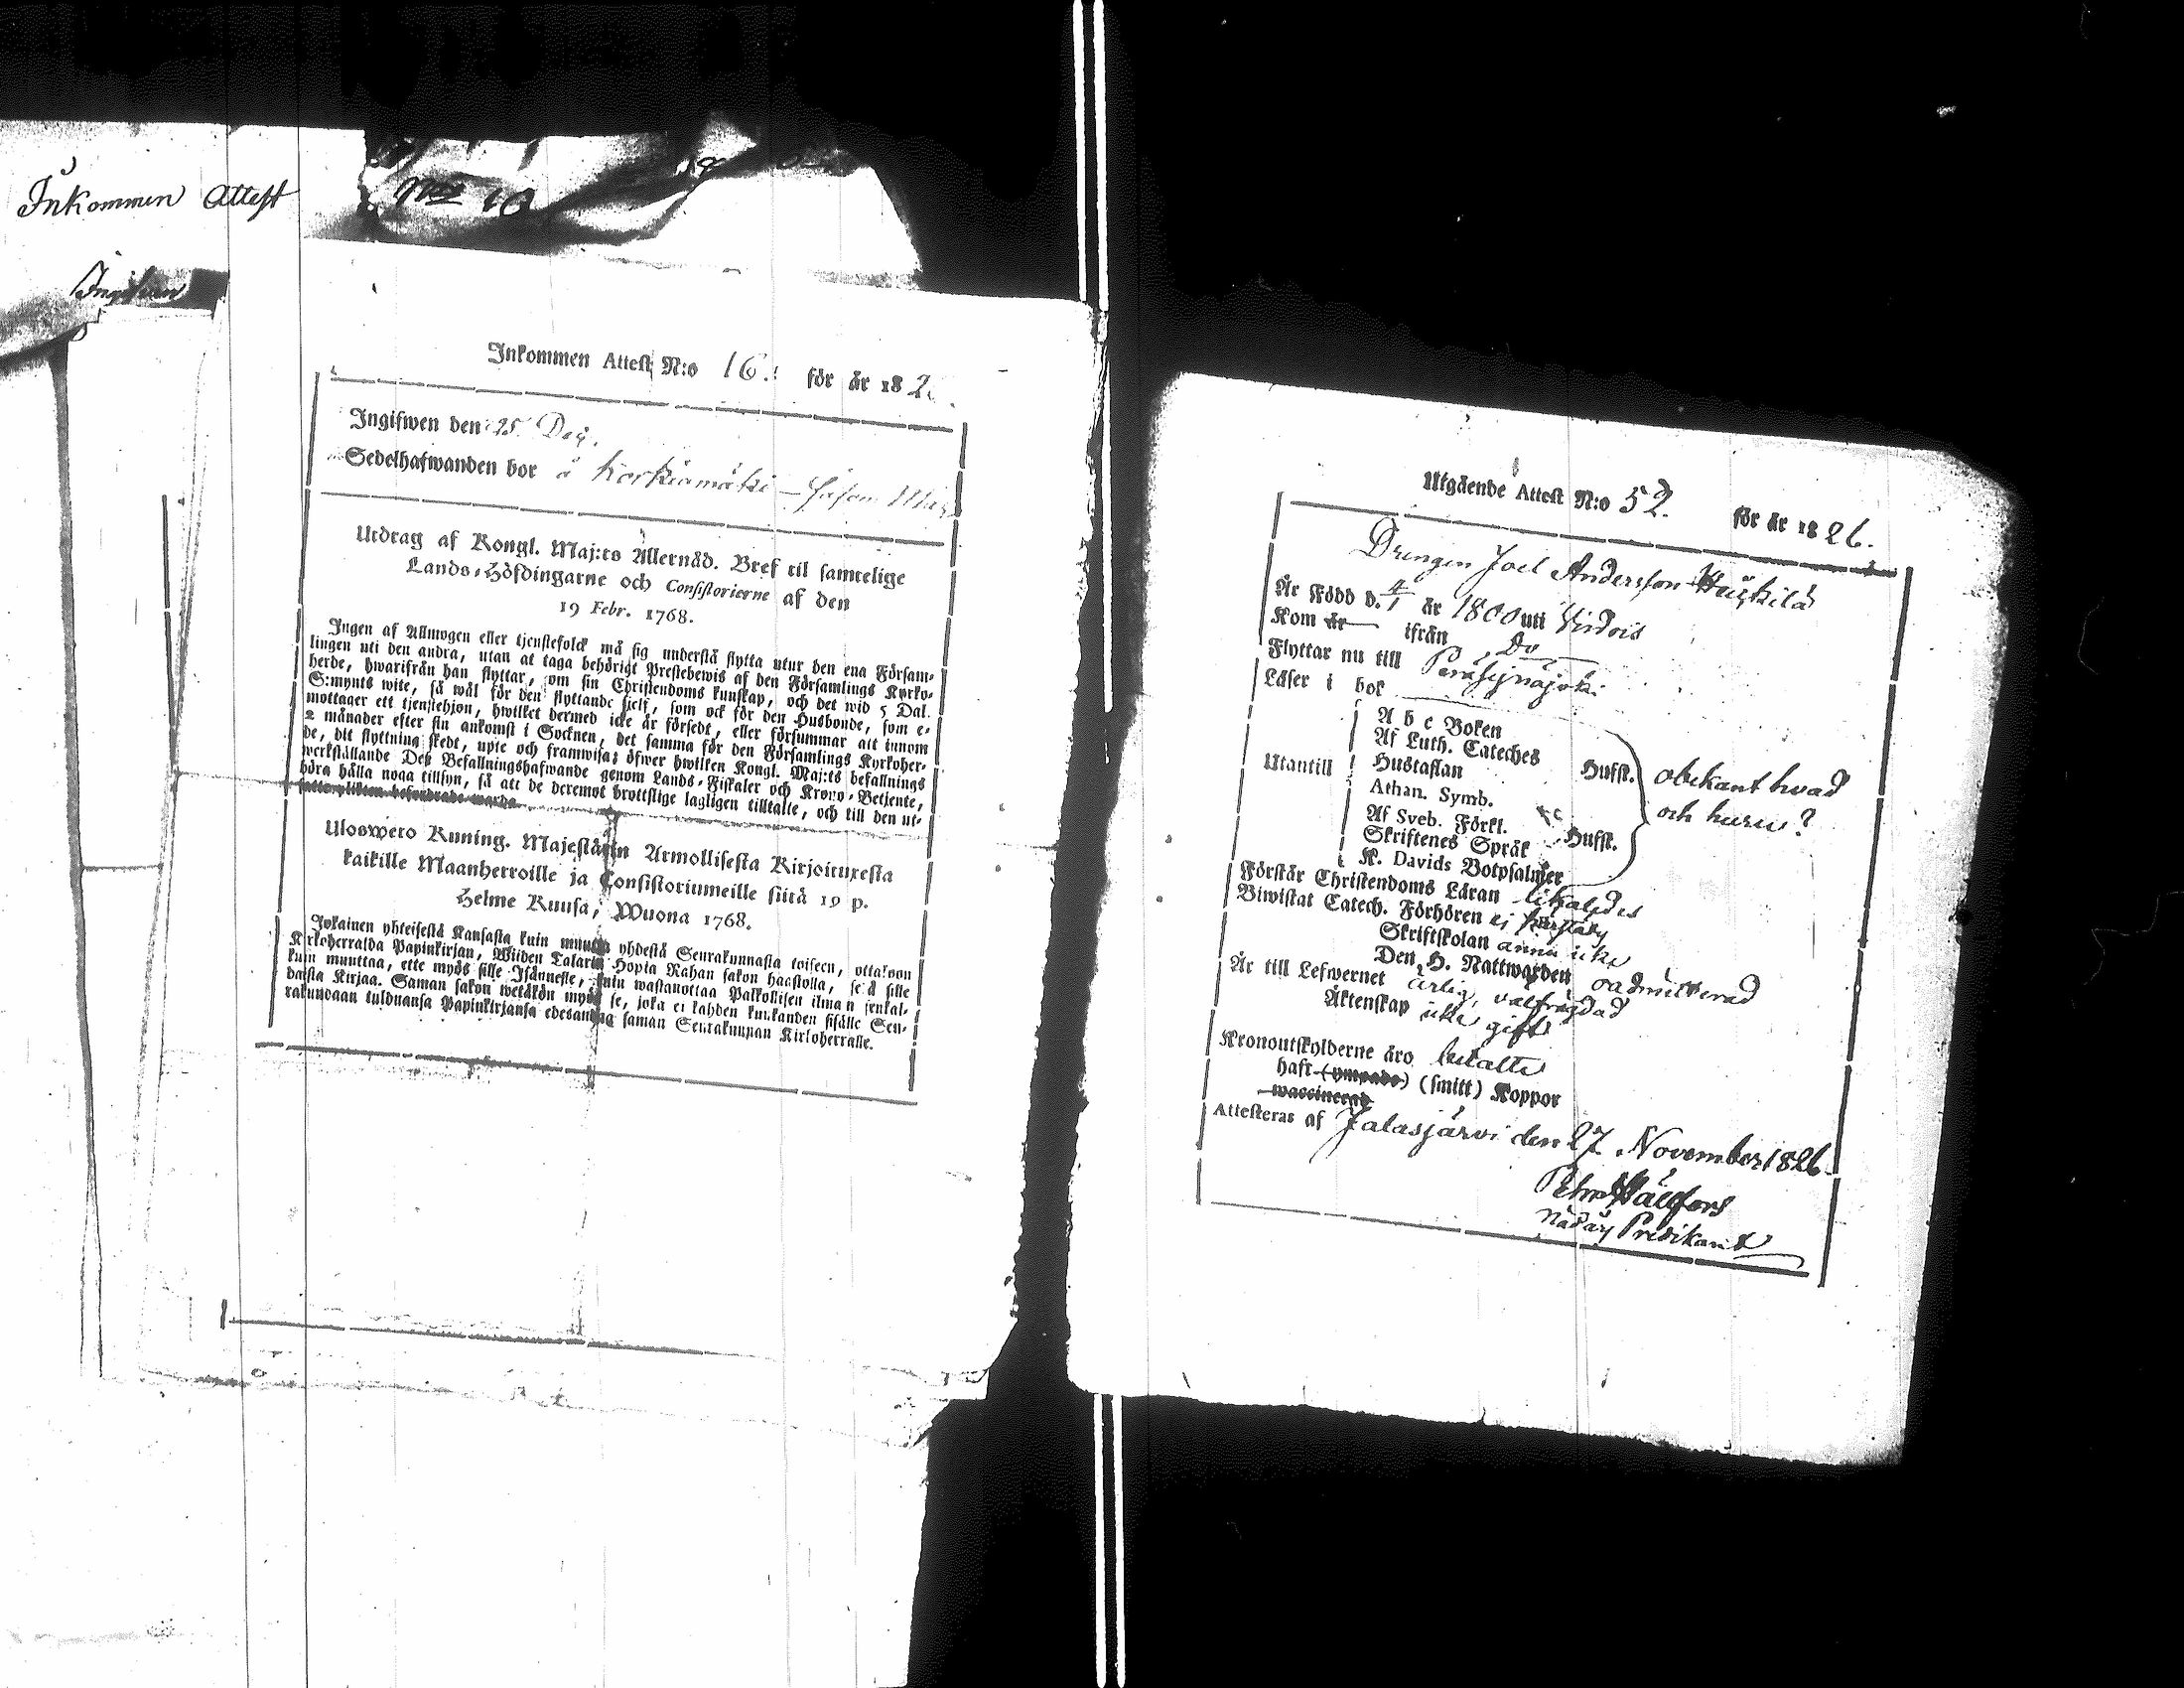 Inkommen Attest
No 10
Inkommen Attest N:o 16. för år 182
Ingifwen den 25 Dec.
Sedelhafwanden bor å Korkiamäki
Utdrag af Kongl. Maj:ts Allernåd. Bref til samtelige
Lands-Höfdingarne och Consistorierne af den
19 Febr. 1768.
Ingen af Allmogen eller tjenstefolck må sig understå flytta utur den ena Försam-
lingen uti den andra, utan at taga behörigt Prestebewis af den Församlings Kyrko-
herde, hwarifrån han flyttar, om sin Christendoms kunskap, och det wid 5 Dal.
S:mynts wite, så wäl för den flyttande sjelf, som ock för den Husbonde, som e-
mottager ett tjenstehjon, hwilket dermed icke är försedt, eller försummar att innom
2 månader efter sin ankomst i Socknen, det samma för den Församlings Kyrkoher-
de, dit flyttning skedt, upte och framwisa; öfwer hwilken Kongl. Maj:ts befallnings
werkställande Des Befallningshafwande genom Lands-Fiskaler och Krono-Betjente,
böra hålla noga tillsyn, så att de deremot brottslige lagligen tilltalte, och till den ut-
satte plikten befordrade warda.
Uloswero Kuning. Majestätin Armollisesta Kirjoituxesta
kaikille Maanherroille ja Consistoriumeille siitä 19 p.
Helme Kuusa, Wuona 1768.
Jokainen yhteisestä Kansasta kuin muutta yhdestä Seurakunnasta toiseen, ottakoon
Kirkoherralda Papinkirjan, Wiiden Talarin Hopia Rahan sakon haastolla, se'ä sille
kuin muuttaa, ette myös sille Isännelle, kuin wastanottaa Palkollisen ilman senkal-
daista Kirjaa. Saman sakon wetäkön myös se, joka ei kahden kuukauden sisälle Seu-
rakundaan tulduansa Papinkirjansa edesanna saman Seurakunnan Kirkoherralle.
Utgående Attest N:o 52. för år 1826.
Drengen Joel Andersson
Är Född d. 4/1 år 1800 uti Virdois
Kom år ifrån Do
Flyttar nu till Peräseinäjoki
Läser i bok
A b c Boken
Af Luth. Cateches
Utantill Hustaflan Hufst. obekant hvad
Athan. Symb. och huru?
Af Sveb. Förkl.
Skriftenes Språk Hufst.
K. Davids Botpsalmer
Förstår Christendoms Läran likaledes
Biwistat Catech. Förhören ej
Skriftskolan ännu icke
Den H. Nattwarden oadmitterad
Är till Lefwernet ärlig, välfrägdad
Äktenskap icke gift
Kronoutskylderne äro betalte
haft (ympade) (smitt) Koppor
waccinerad
Attesteras af Jalasjärvi den 27 November 1826
Petr Hällfors
Nådårs Predikant